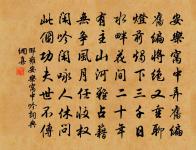 安樂窩中弄舊
編舊編將絕又重聯
燈前燭下三千日
水畔花間二十年
有主山河難占籍
無爭風月任收權
閑吟閑詠人休問
此個功夫世不傳
邵雍安樂窩中吟詞典
網喜